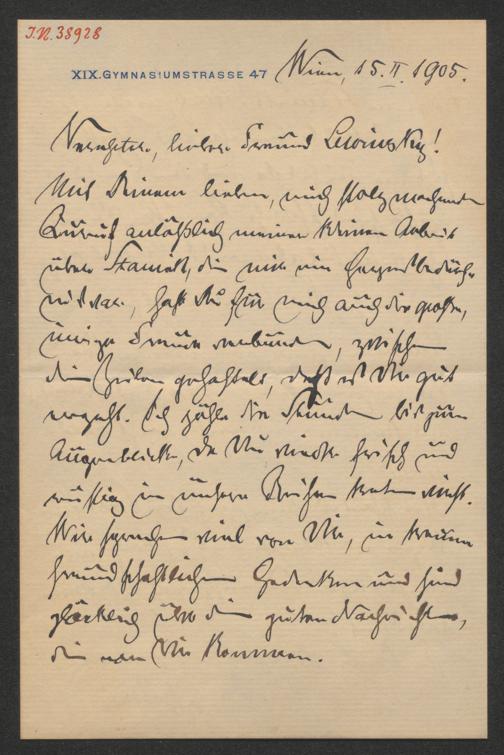 I.N. 38928
XIX. GYMNASIUMSTRASSE 47 Wien, 15. II. 1905.
Verehrter, lieber Freund Lewinsky!
Mit Deinem lieben, mich stolz machenden
Zuruf anläßlich meiner kleinen Arbeit
über, die mir ein Herzensbedürfnis
war, hast Du für mich auch die große,
innige Freude verbunden, zwischen
den Zeilen, daß es Dir gut
ergeht. Ich zähle die Stunden bis zum
Augenblicke, da Du wieder frisch und
rüstig in unsere Reihen treten wirst.
Wir sprechen viel von Dir, in treuem
freundschaftlichem Gedenken und sind
glücklich über die guten Nachrichten,
die von Dir kommen.